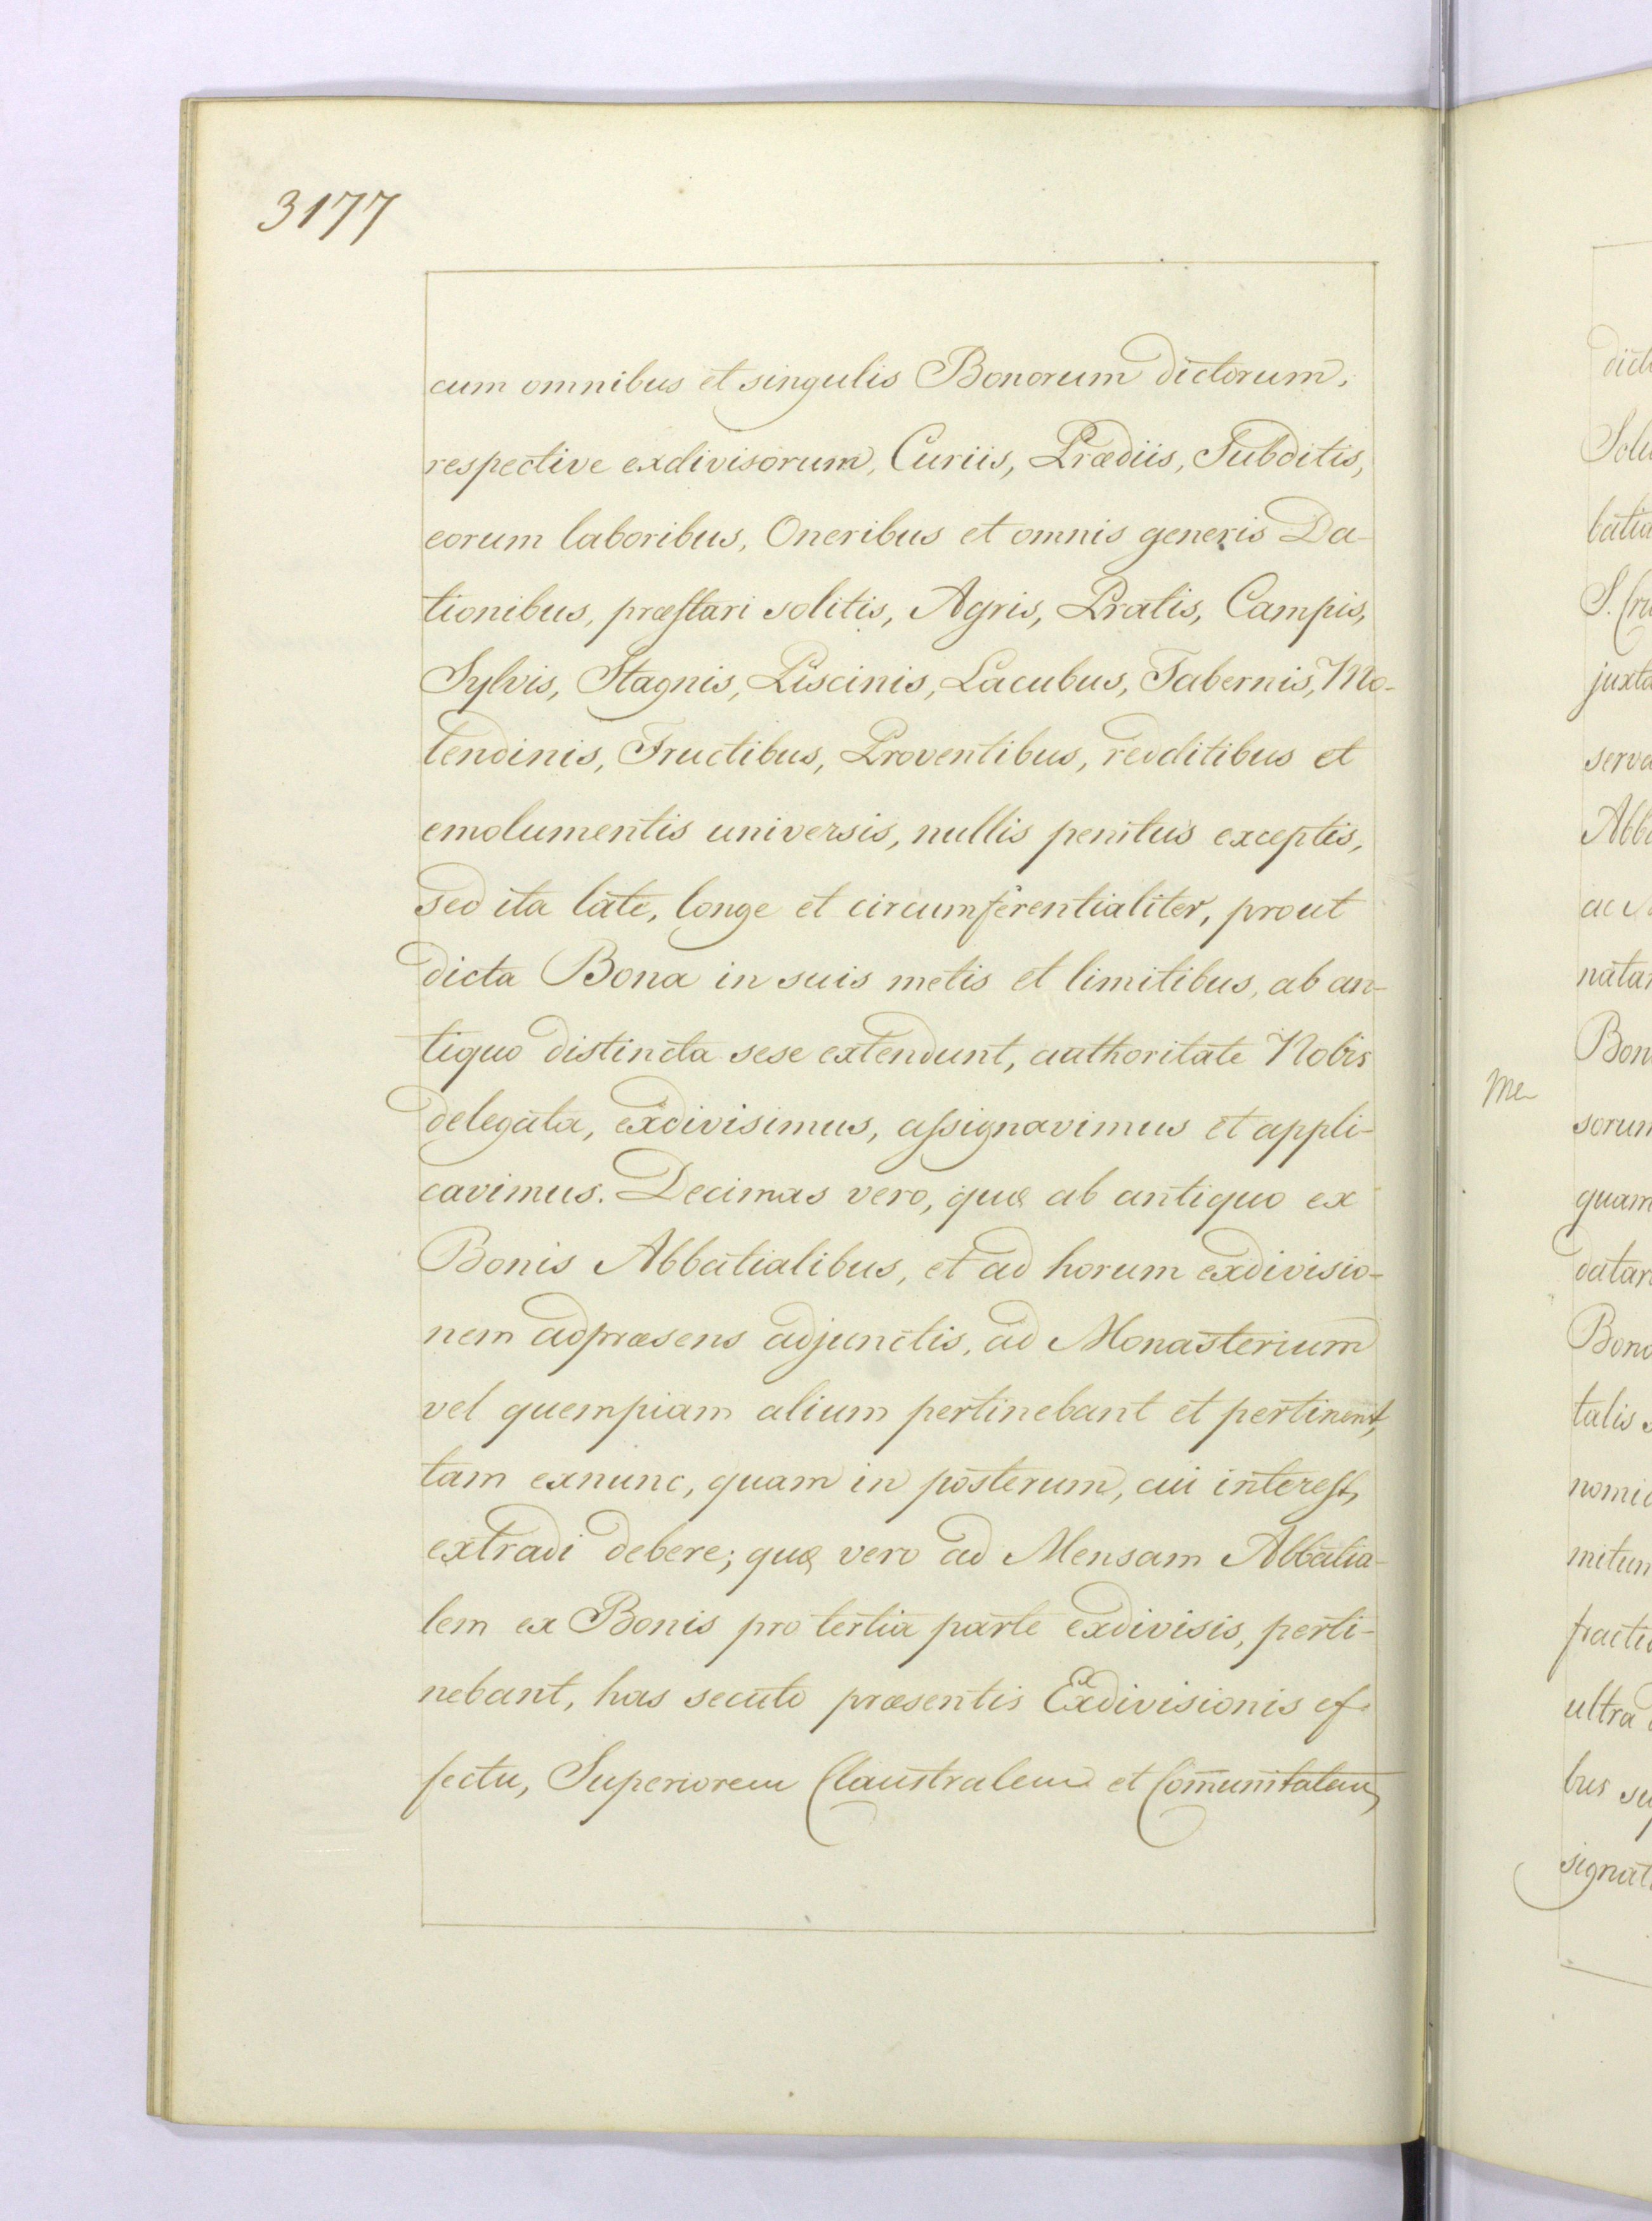 3177
cum omnibus et singulis Bonorum dictorum,
respective exdivisorum, Curiis, Prædiis, Subditis,
eorum laboribus, Oneribus et omnis generis Da-
tionibus, præstari solitis, Agris, Pratis, Campis,
Sylvis, Stagnis, Piscinis, Lacubus, Tabernis, Mo-
lendinis, Fructibus, Proventibus, redditibus et
emolumentis universis, nullis penitus exceptis,
sed ita late, longe et circumferentialiter, prout
dicta Bona in suis metis et limitibus, ab an-
tiquo distincta sese extendunt, authoritate Nobis
delegata, exdivisimus, assignavimus et appli-
cavimus. Decimas vero, quæ ab antiquo ex
Bonis Abbatialibus, et ad horum exdivisio-
nem adpræsens adjunctis, ad Monasterium
vel quempiam alium pertinebant et pertinent,
tam exnunc, quam in posterum, cui interest,
extradi debere; quæ vero ad Mensam Abbatia-
lem ex Bonis pro tertia parte exdivisis, perti-
nebant, has secuto præsentis Exdivisionis ef-
fectu, Superiorem Claustralem et Com̄unitatem,
dict
Solu
batia
S. Cru
juxta
serva
Abba
ac
natar
Bon
sorum
quam
datar
Bono
talis
nomic
mitum
fractio
ultra
bus su
signat